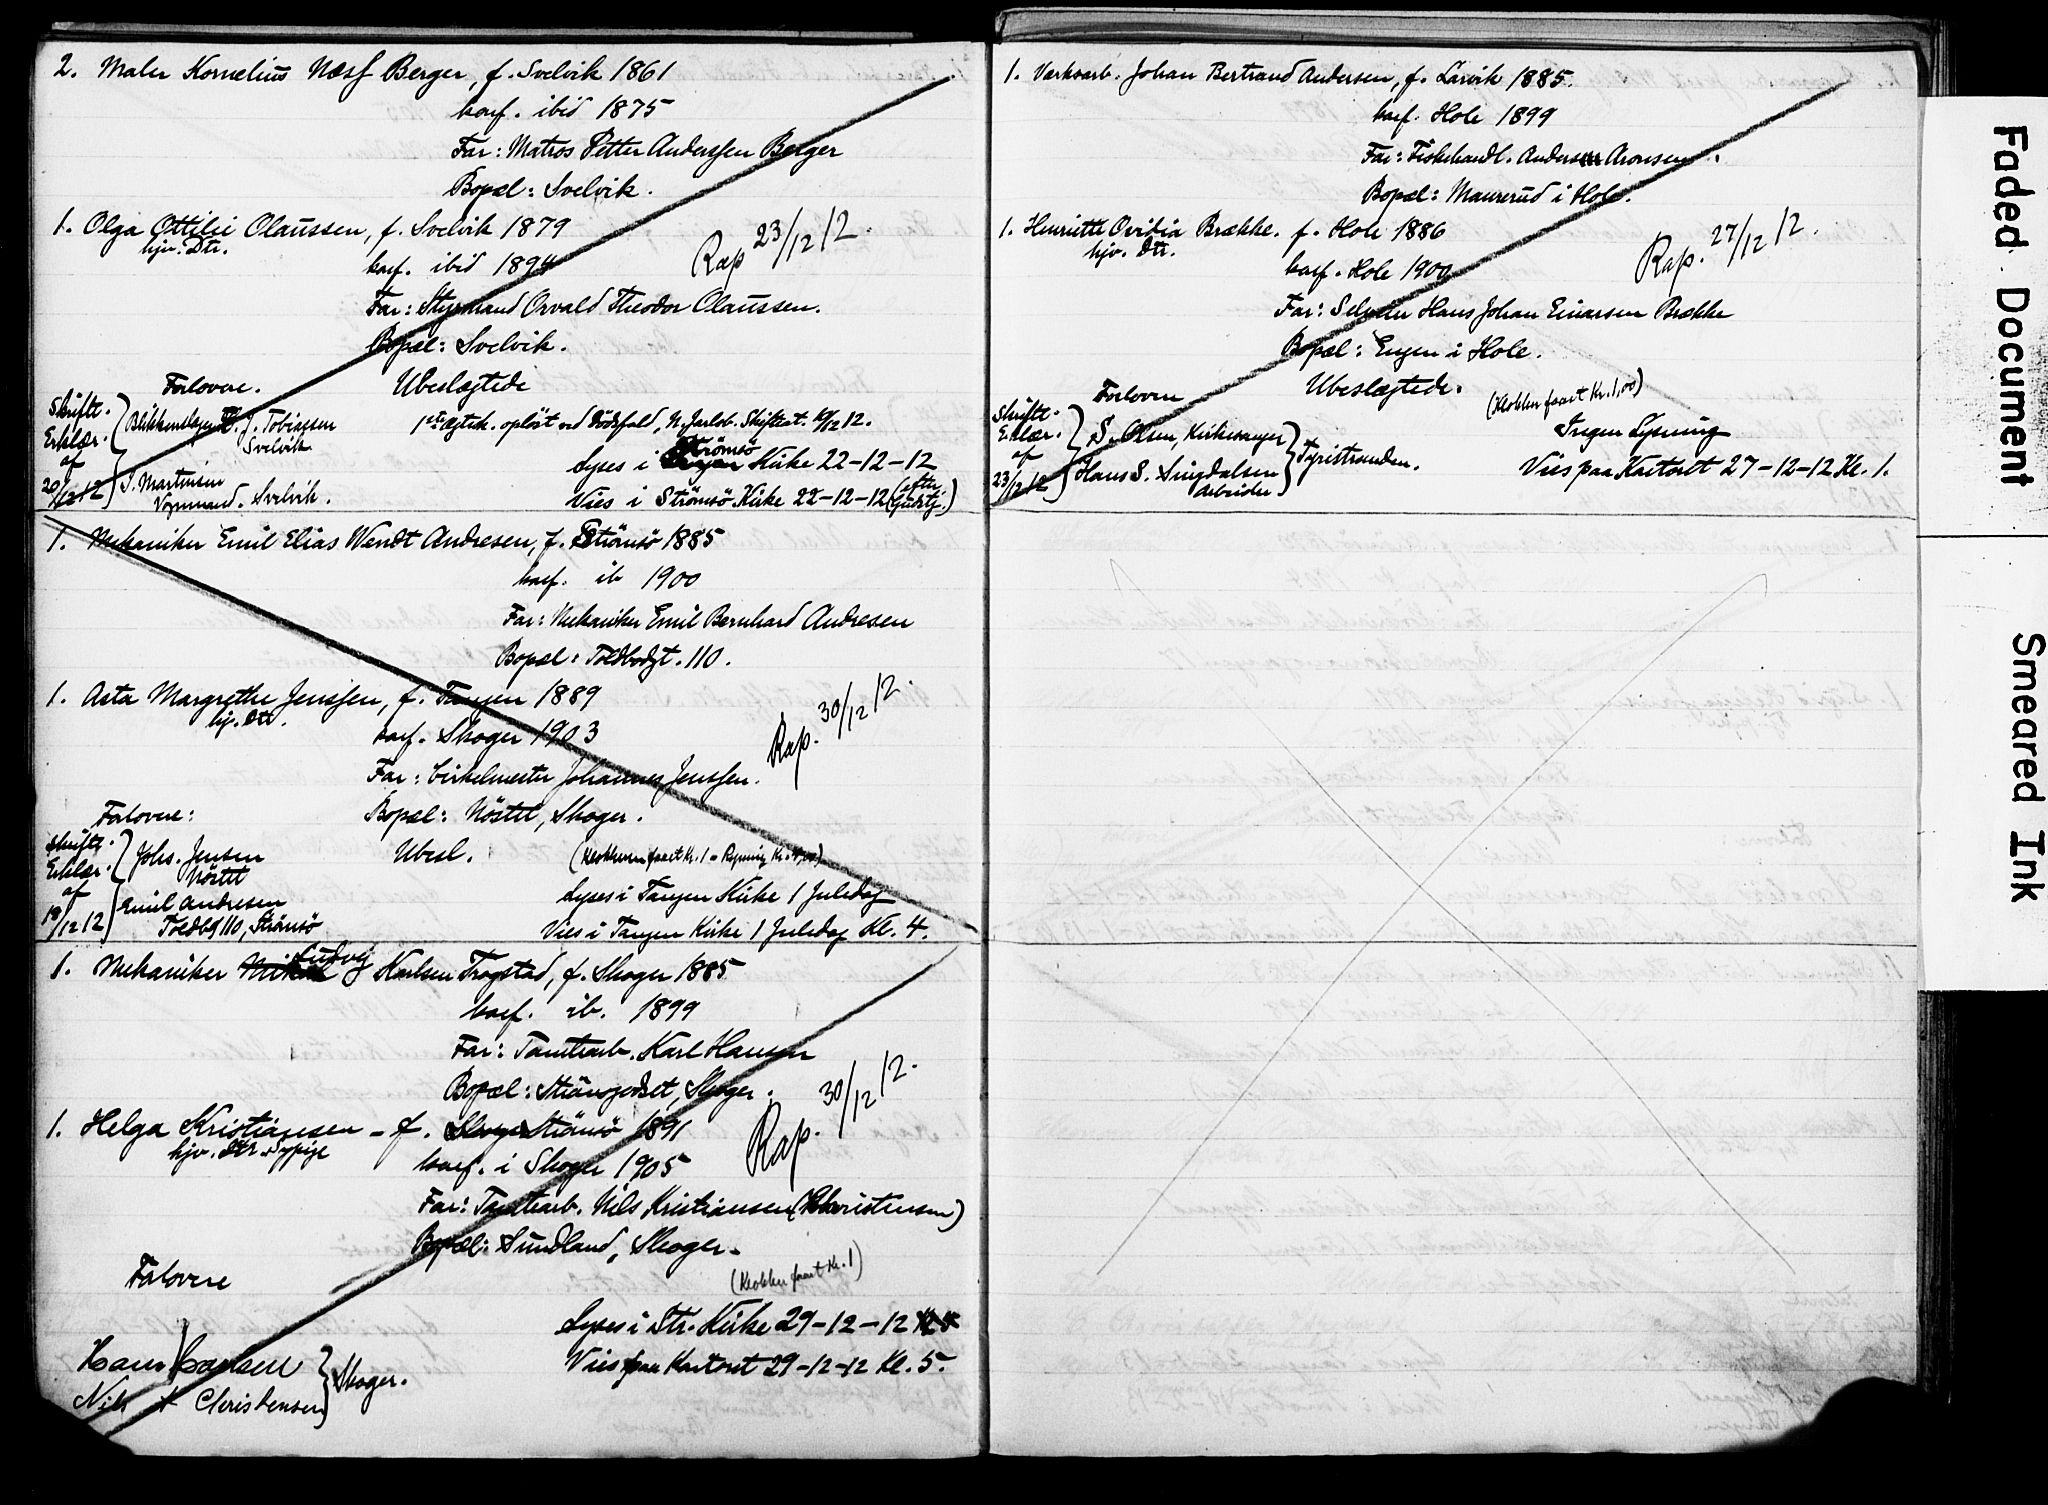 2. Maler Kornelius Næsf Berger, f. Svelvik 1861
konf. ibid 1875
Far: Matros Petter Anderssen Berger
Bopæl: Svelvik.
1. Olga Ottilie Olaussen, f. Svelvik 1879
hjv. Dtr.
konf. ibid 1894
Rap 23/12 12.
Far: Styrmand Orvald Theodor Olaussen.
Bopæl: Svelvik.
Forlovere. Ubeslægtede
Skriftl. Erklær. af 20/12 12
J. Tobiassen
Svelvik
1ste Ægtesk. opløst ved Dödsfald, N. Jarlsb. Skifteat. 6/12 12.
J. Martinsen
Vognmand. Svelvik.
Lyses i Strömsö Kirke 22-12-12
Vies i Strömsö Kirke 22-12-12 (efter Gudstj.)
1. Mekaniker Emil Elias Wendt Andresen, f. Strömsö 1885
konf. ib 1900
Far: Mekaniker Emil Bernhard Andresen
Bopæl: Toldbodgt. 110.
1. Asta Margrethe Jenssen, f. Tangen 1889
hj. Dtr.
konf. Skoger 1903
Rap. 30/12 12.
Far: Cirkelmester Johannes Jenssen.
Forlovere: Bopæl: Nöstet, Skoger.
Skriftl. Erklær. af 18/12 12
Johs. Jensen
Nöstet
Ubesl. (Klokkeren faaet Kr. 1 - Rypning Kr. 4,00)
Emil Andresen
Toldbg 110, Strömsö
Lyses i Tangen Kirke 1 Juledag
Vies i Tangen Kirke 1 Juledag Kl. 4.
1. Mekaniker Ludvig Karlsen Trogstad, f. Skoger 1885
konf. ib. 1899
Far: Tomtearb. Karl Hansen
Bopæl: Strömsgodset, Skoger.
1. Helga Kristiansen - f. Strömsö 1891
hjv. Dtr. Sypige
konf. i Skoger 1905
Rap. 30/12 12.
Far: Tomtearb. Nils Kristiansen (Christensen)
Bopæl: Sundland, Skoger.
Forlovere (Klokker faaet Kr. 1)
Lyses i Str. Kirke 29-12-12
Vies paa Kontoret 29-12-12 Kl. 5.
Nils A Christensen
Skoger.
1. Verksarb. Johan Bertrand Andersen, f. Larvik 1885.
konf. Hole 1899
Far: Fiskehandl. Anders Aronsen.
Bopæl: Maurerud i Hole.
1. Henriette Ovidia Brække. f. Hole 1886
hjv. Dtr.
konf. Hole 1900
Rap. 27/12 12.
Far: Selveier Hans Johan Einarsen Brække
Bopæl: Engen i Hole.
Forlovere Ubeslægtede. (Klokker faaet Kr. 1,00)
Skriftl. Erklær. af 23/12 12
S. Olsen, Kirkesanger
Hans S. Lingdalsen
Arbeider
Tyristranden.
Ingen Lysning
Vies paa Kontoret 27-12-12 Kl. 1.
Faded Document
Smeared Ink